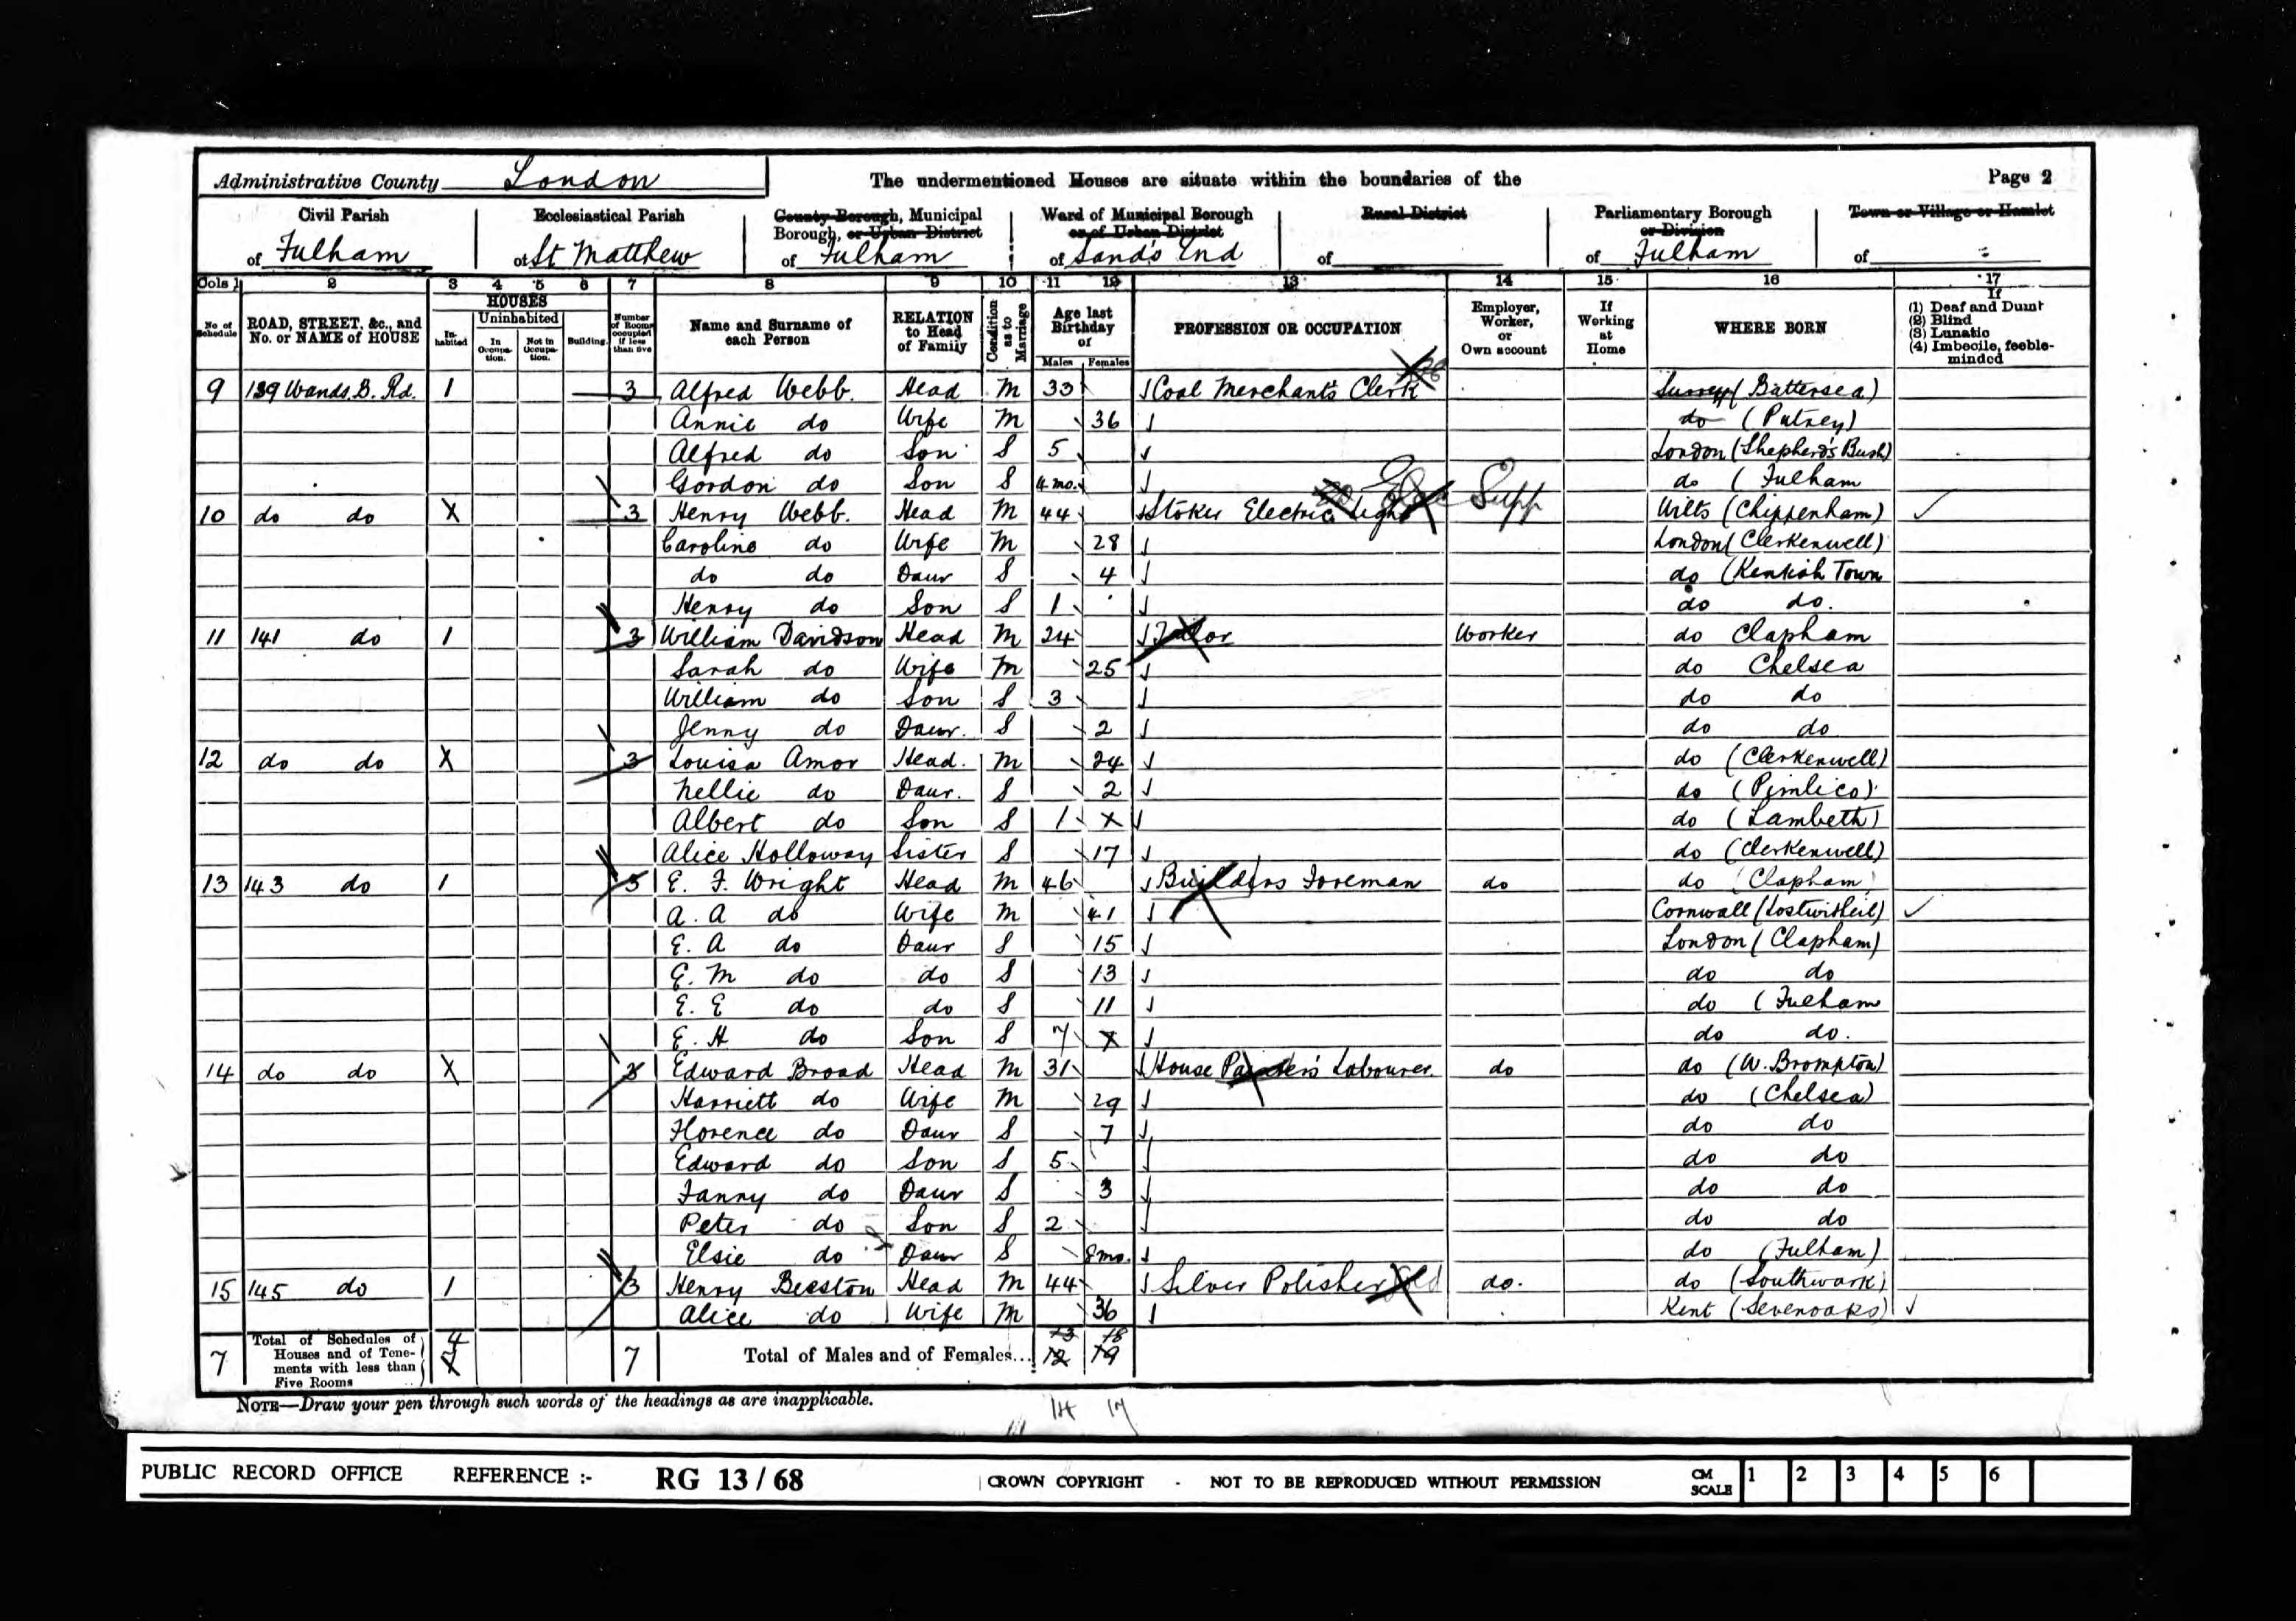 Administrative County London The undermentioned Houses are situate within the boundaries of the Page 2
Civil Parish of Fulham
Ecclesiastical Parish of St Matthew
County Borough, Municipal Borough, or Urban District of Fulham
Ward of Municipal Borough or of Urban District of Sand's End
Rural District of
Parliamentary Borough or Division of Fulham
Town or Village or Hamlet of
Cols 1 2 3 4 5 6 7 8 9 10 11 12 13 14 15 16 17
No of Schedule
ROAD, STREET, &c., and No. or NAME of HOUSE
HOUSES
Inhabited
Uninhabited
In Occupation.
Not in Occupation.
Building.
Number of Rooms occupied if less than five
Name and Surname of each Person
RELATION to Head of Family
Condition as to Marriage
Age last Birthday of
Males Females
PROFESSION OR OCCUPATION
Employer, Worker, or Own account
If Working at Home
WHERE BORN
If
(1) Deaf and Dumb
(2) Blind
(3) Lunatic
(4) Imbecile, feeble-minded
9 139 Wands. B. Rd. 1 3 Alfred Webb. Head M 33 Coal Merchant's Clerk Surrey (Battersea)
Annie do Wife M 36 do (Putney)
Alfred do Son S 5 London (Shepherd's Bush)
Gordon do Son S 4 mo. do (Fulham
10 do do X 3 Henry Webb. Head M 44 Stoker Electric Light Elec Supp Wilts (Chippenham)
Caroline do Wife M 28 London (Clerkenwell)
do do Daur S 4 do (Kentish Town
Henry do Son S 1 do do.
11 141 do 1 3 William Davidson Head M 24 Tailor Worker do Clapham
Sarah do Wife M 25 do Chelsea
William do Son S 3 do do
Jenny do Daur. S 2 do do
12 do do X 3 Louisa Amor Head. M 24 do (Clerkenwell)
Nellie do Daur. S 2 do (Pimlico)
Albert do Son S 1 X do (Lambeth)
Alice Holloway Sister S 17 do (Clerkenwell)
13 143 do 1 3 E. F. Wright Head M 46 Builders Foreman do do (Clapham)
A. A do Wife M 41 Cornwall (Lostwithiel)
E. A do Daur S 15 London (Clapham)
E. M do do S 13 do do
E. E do do S 11 do (Fulham
E. H do Son S 7 X do do.
14 do do X 3 Edward Broad Head M 31 House Painter's Labourer. do do (W. Brompton)
Harriett do Wife M 29 do (Chelsea)
Florence do Daur S 7 do do
Edward do Son S 5 do do
Fanny do Daur S 3 do do
Peter do Son S 2 do do
Elsie do Daur S 8 mo. do (Fulham)
15 145 do 1 3 Henry Beeston Head M 44 Silver Polisher do. do (Southwark)
Alice do Wife M 36 Kent (Sevenoaks)
7 Total of Schedules of Houses and of Tenements with less than Five Rooms 4 7 7 Total of Males and of Females... 13 18
12 19
NOTE—Draw your pen through such words of the headings as are inapplicable.
14 17
PUBLIC RECORD OFFICE REFERENCE :- RG 13 / 68 CROWN COPYRIGHT - NOT TO BE REPRODUCED WITHOUT PERMISSION CM SCALE 1 2 3 4 5 6